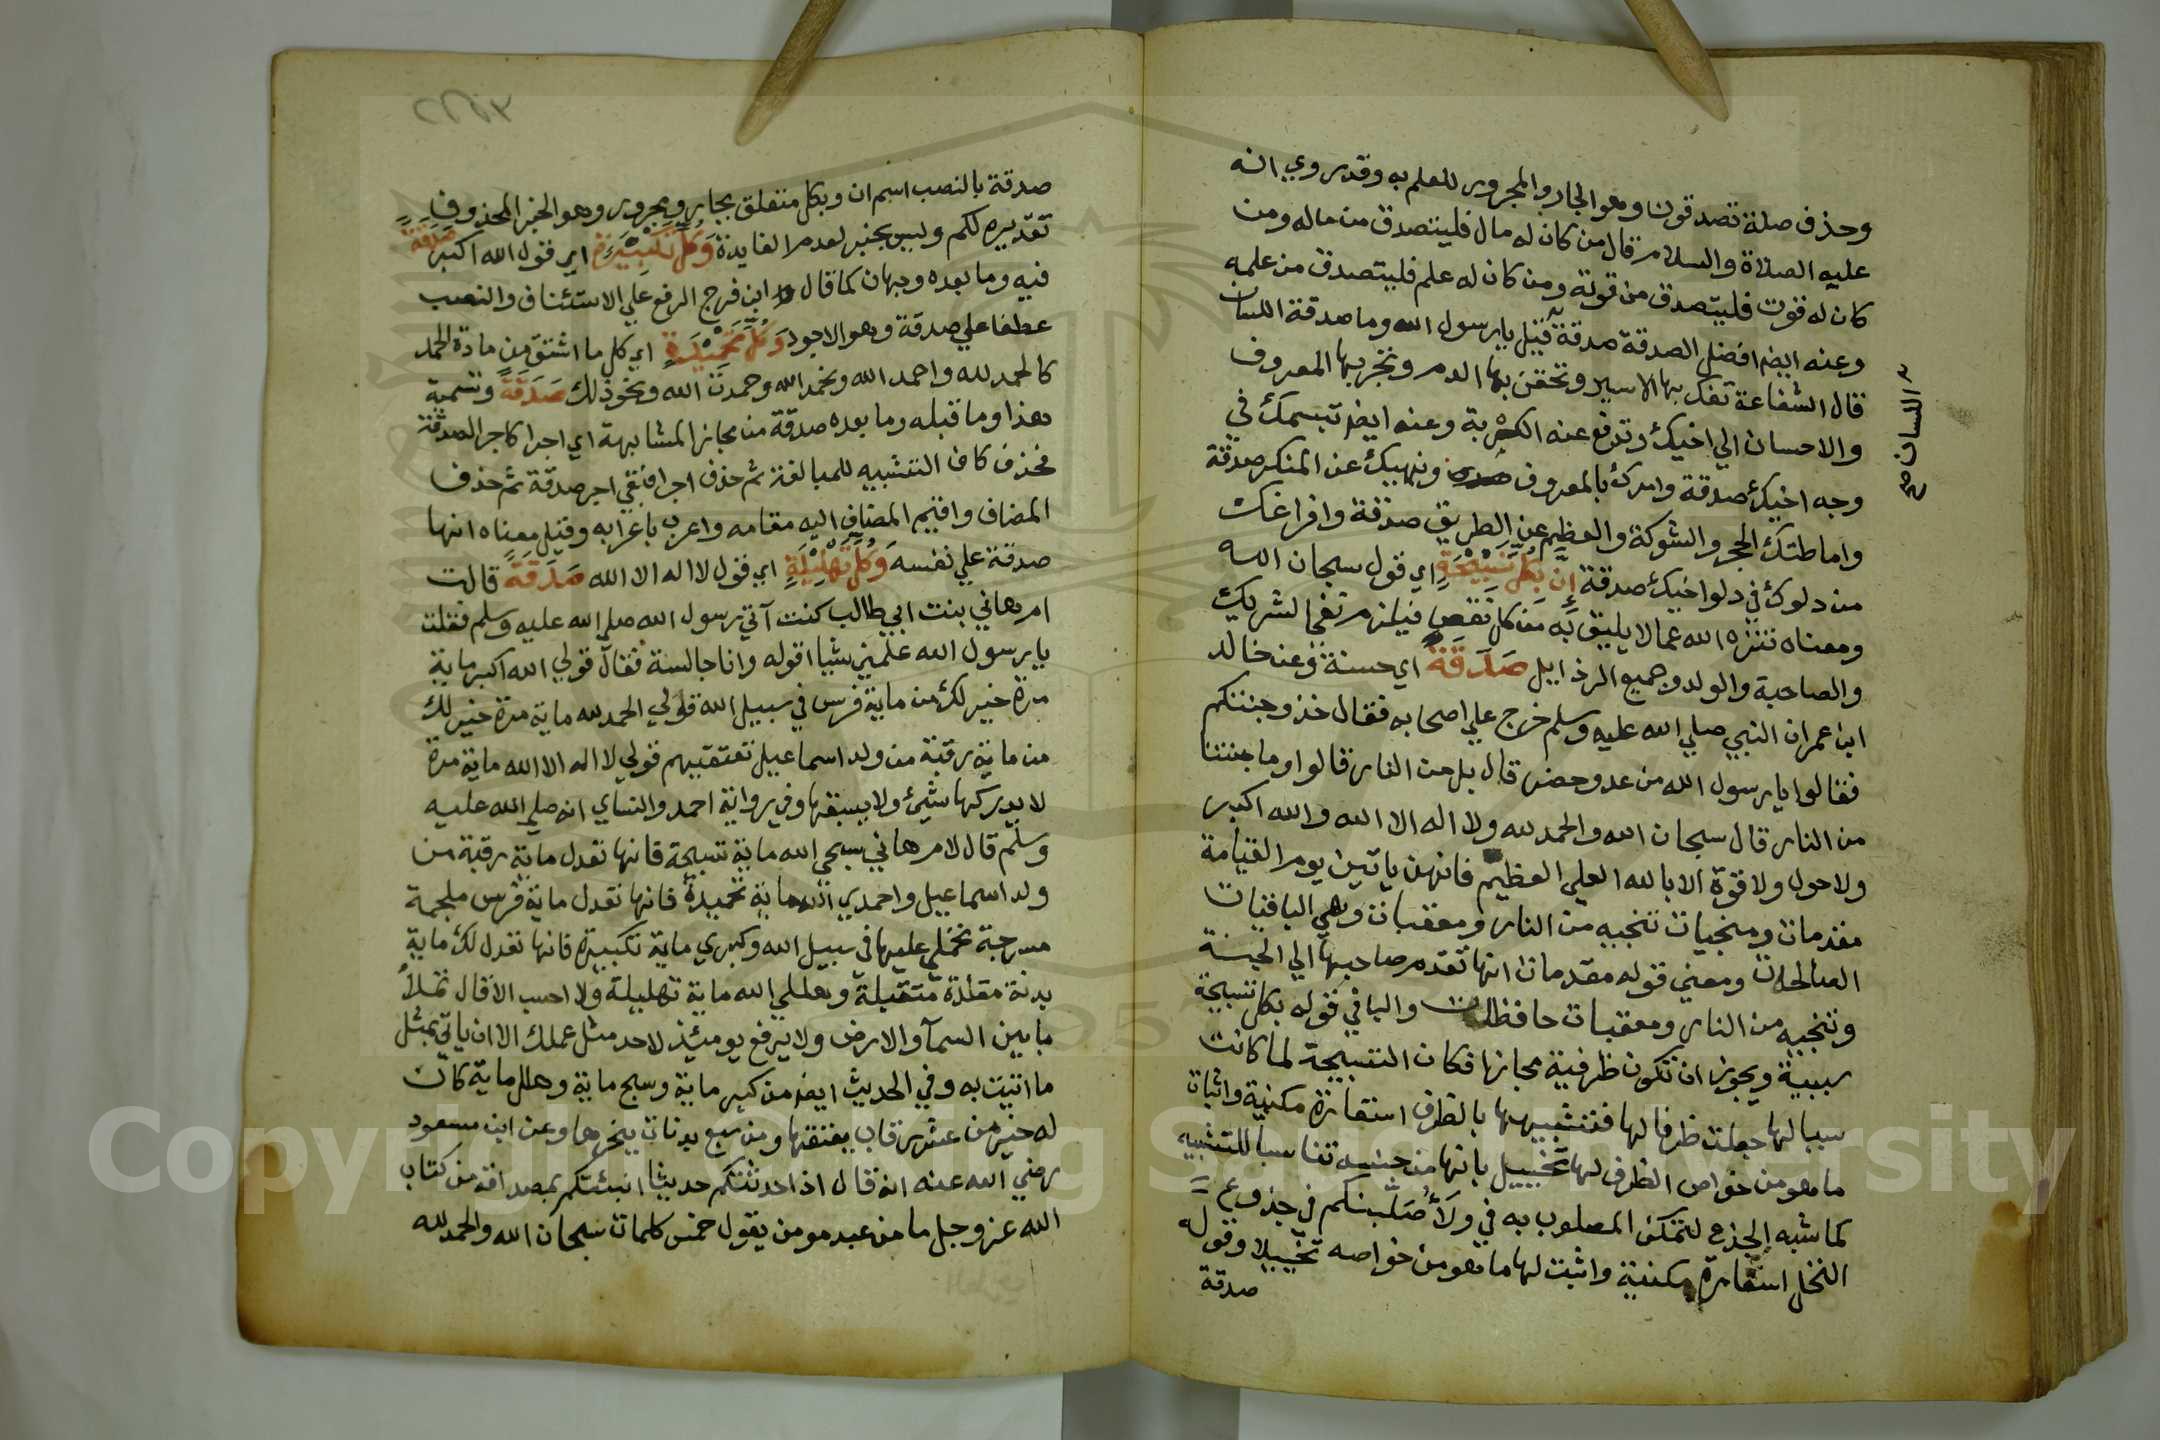 وحذف صلة تصدقون وهو الجار والمجرور للعلم به وقد روي انه
عليه الصلاة والسلام قال من كان له مال فليتصدق من ماله ومن
كان له قوت فليتصدق من قوته ومن كان له علم فليتصدق من علمه
وعنه ايضا افضل الصدقة صدقة قيل يا رسول الله وما صدقة اللسان
قال الشفاعة تفك بها الاسير وتحقن بها الدم وتجر بها المعروف
والاحسان الي اخيك وتدفع عنه الكربة وعنه ايضا تبسمك في
وجه اخيك صدقة وامرك بالمعروف صدقة ونهيك عن المنكر صدقة
واماطتك الحجر والشوكة والعظم عن الطريق صدقة وافراغك
من دلوك في دلو اخيك صدقة إِنَّ بِكُلِّ تَسْبِيْحَةٍ اي قول سبحان الله
ومعناه تنزه الله عما لا يليق به من كل نقص فيلزم نفي الشريك
والصاحبة والولد وجميع الرذايل صَدَقَةً اي حسنة وعن خالد
ابن عمران النبي صلي الله عليه وسلم خرج علي اصحابه فقال خذوا جنتكم
فقالوا يا رسول الله من عدو حضر قال بل من النار قالوا وما جنتنا
من النار قال سبحان الله والحمد لله ولا اله الا الله والله اكبر
ولا حول ولا قوة الا بالله العلي العظيم فانهن ياتين يوم القيامة
مقدمات ومنجيات تنجيه من النار ومعقبات وهي الباقيات
الصالحات ومعني قوله مقدمات انها تقدم صاحبها الي الجنة
وتنجيه من النار ومعقبات حافظات والبا في قوله بكل تسبيحة
سببية ويجوز ان تكون ظرفية مجازا فكان التسبيحة لما كانت
سببا لها جعلت ظرفا لها فتشبيهها بالظرف استعارة مكنية واثبات
ما هو من خواص الظرف لها تخييل بانها من جنسه تناسبا للتشبيه
كما شبه الجذع لتمكن المصلوب به في ولَأُصَلِّبنكم في جذوع
النخل استعارة مكنية واثبت لها ما هو من خواصه تخييلا وقوله
صدقة
اللسان صح
صدقة بالنصب اسم ان وبكل متعلق بجار ومجرور وهو الخبر المحذوف
تقديره لكم وليس بخبر لعدم الفايدة وَكُلُّ تَكْبِيْرَةٍ اي قول الله اكبر صَدَقَةٌ
فيه وما بعده وجهان كما قال ابن فرج الرفع علي الاستئناف والنصب
عطفا علي صدقة وهو الاجود وَكُلُّ تَحْمِيْدَةٍ اي كل ما اشتق من مادة الحمد
كالحمد لله واحمد الله ونحمد الله وحمدت الله ونحو ذلك صَدَقَةٌ وتسمية
هذا وما قبله وما بعده صدقة من مجاز المشابهة اي اجرا كاجر الصدقة
فحذف كاف التشبيه للمبالغة ثم حذف اجرا فبقي اجر صدقة ثم حذف
المضاف واقيم المضاف اليه مقامه واعرب باعرابه وقيل معناه انها
صدقة علي نفسه وَكُلُّ تَهْلِيْلَةٍ اي قول لا اله الا الله صَدَقَةٌ قالت
ام هاني بنت ابي طالب كنت آتي رسول الله صلي الله عليه وسلم فقلت
يا رسول الله علمني شيا اقوله وانا جالسة فقال قولي الله اكبر ماية
مرة خير لك من ماية فرس في سبيل الله قولي الحمد لله ماية مرة خير لك
من ماية رقبة من ولد اسماعيل تعتقيهم قولي لا اله الا الله ماية مرة
لا يدركها شيئ ولا يسبقها وفي رواية احمد والنساي انه صلي الله عليه
وسلم قال لام هاني سبحي الله ماية تسبيحة فانها تعدل ماية رقبة من
ولد اسماعيل واحمدي الله ماية تحميدة فانها تعدل ماية فرس ملجمة
مسرجة تحملي عليها في سبيل الله وكبري ماية تكبيرة فانها تعدل لك ماية
بدنة مقلدة متقبلة وهللي الله ماية تهليلة ولا احسب الا قال تملأ
ما بين السمآ والارض ولا يرفع يومئذ لاحد مثل عملك الا ان ياتي بمثل
ما اتيت به وفي الحديث ايضا من كبر ماية وسبح ماية وهلل ماية كان
له خير من عشر رقاب يعتقها ومن سبع بدنات ينحرها وعن ابن مسعود
رضي الله عنه انه قال اذا حدثتكم حديثا انبئتكم بمصداقه من كتاب
الله عز وجل ما من عبد مومن يقول خمس كلمات سبحان الله والحمد لله
Copyright © King Saud University